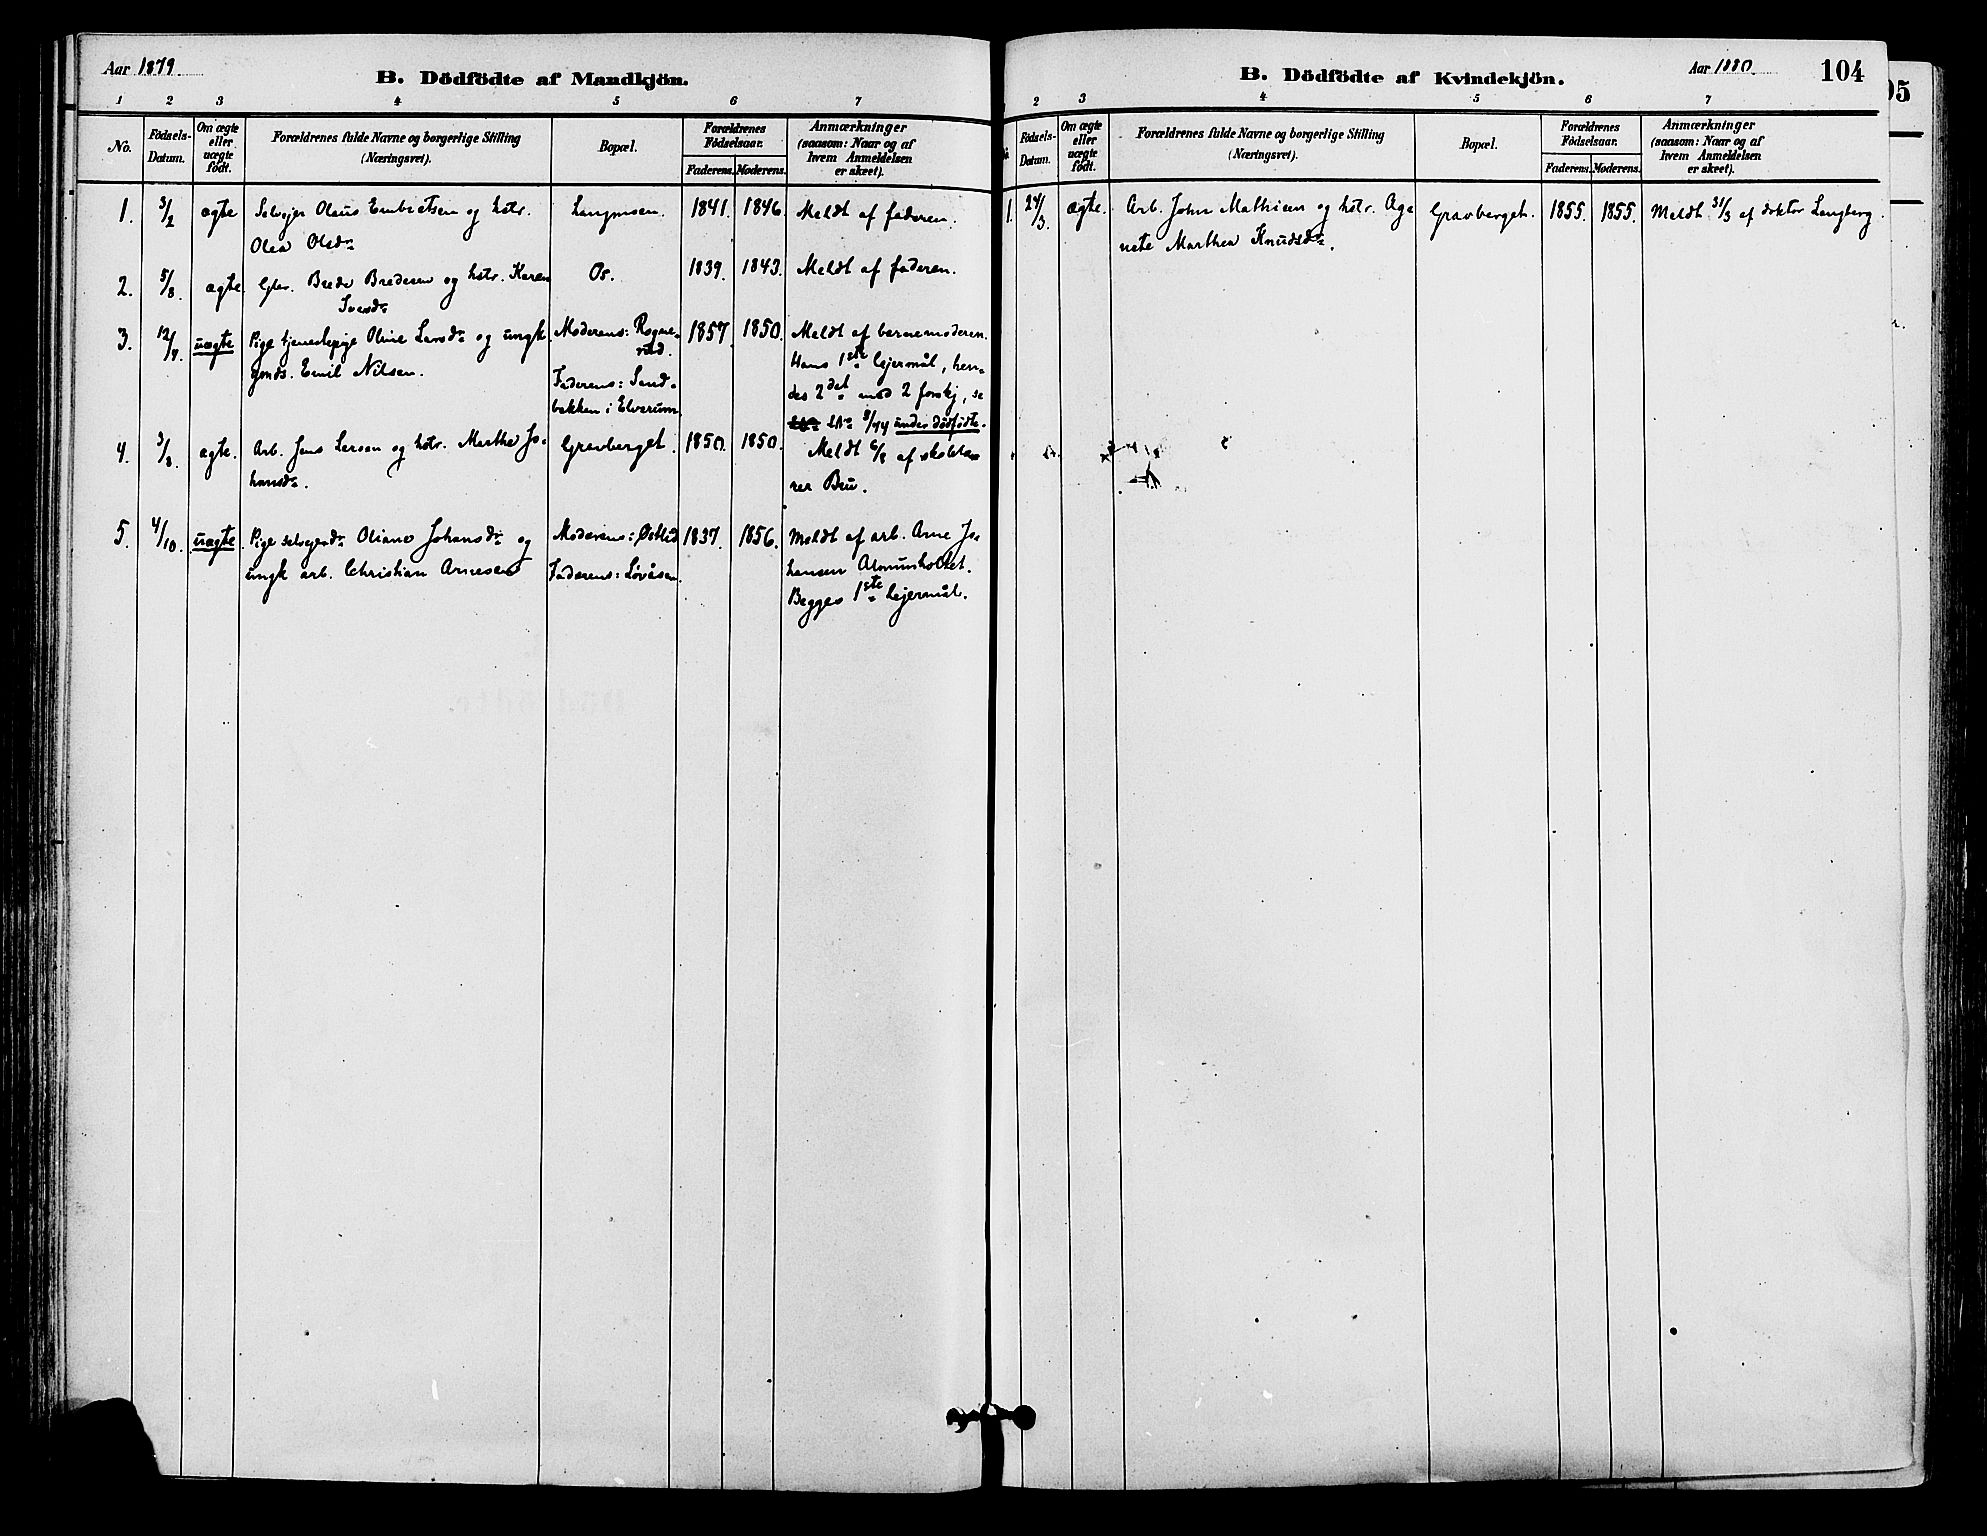 Aar 1879.
B. Dödfödte af Mandkjön.
1 2 3 4 5 6 7
No. Födsels-Datum. Om ægte eller uægte födt. Forældrenes fulde Navne og borgerlige Stilling (Næringsvei). Bopæl. Forældrenes Födselsaar. Faderens. Moderens. Anmærkninger (saasom: Naar og af hvem Anmeldelsen er skeet).
1. 3/2 ægte Selvejer Olaus Embretsen og hstr. Langmoen. 1841. 1846. Meldt af faderen.
Olea Olsdr.
2. 5/8. ægte. Gbr. Brede Bredesen og hstr. Karen Os. 1839. 1843. Meldt af faderen.
Iversdr.
3. 12/7. uægte Pige tjenestepige Oline Larsdr. og ungk. Moderens: Rogne- 1857. 1850. Meldt af barnemoderen.
rud. Hans 1ste lejermål, hen-
gmds. Emil Nilsen. Faderens: Sand- des 2det med 2 forskj, se
bakken i Elverum. No 8/77 under dödfödte.
4. 3/8. ægte. Arb. Jens Larsen og hstr. Marthe Jo- Gravberget. 1850. 1850. Meldt 6/8 af skolelæ-
hansdr. rer Bru.
5. 4/10. uægte. Pige selvejerdr. Oliane Johansdr. og Moderens: Østlid 1837. 1856. Meldt af arb. Arne Jo-
ungk arb. Christian Arnesen Faderens: Løvåsen. hansen Almunholtet.
Begges 1ste lejermål.
Aar 1880.
B. Dödfödte af Kvindekjön.
104
95
2 3 4 5 6 7
Födsels-Datum. Om ægte eller uægte födt. Forældrenes fulde Navne og borgerlige Stilling (Næringsvei). Bopæl. Forældrenes Födselsaar. Faderens. Moderens. Anmærkninger (saasom: Naar og af hvem Anmeldelsen er skeet).
1. 24/3. ægte. Arb. John Mathisen og hstr. Ag- Gravberget. 1855. 1855. Meldt 31/3 af doktor Langberg.
nete Marthea Knudsdr.